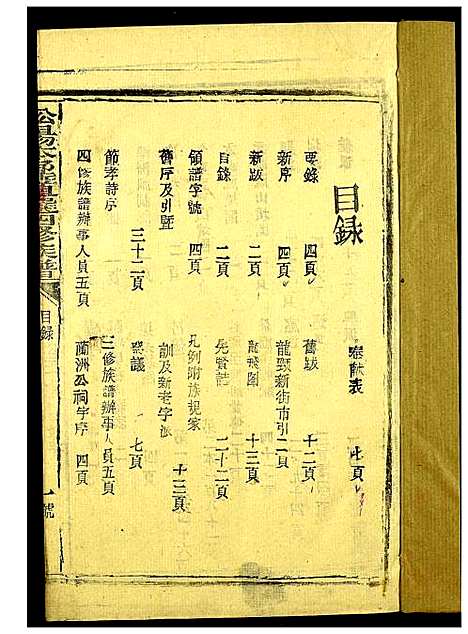 目録
要錄 四頁
舊跋 十二頁
新序 四頁
龍頸新街市引 二頁
新跋 二頁
龍飛圖 十三頁
目錄 二頁
先賢誌 二十二頁
領譜字號 四頁
凡例附族規家訓及新老字派 十三頁
舊序及引暨節孝詩序 三十二頁
眾議 七頁
四修族譜辦事人員 五頁
三修族譜辦事人員 五頁
蘭洲公祠字序 四頁
目錄
四修族譜